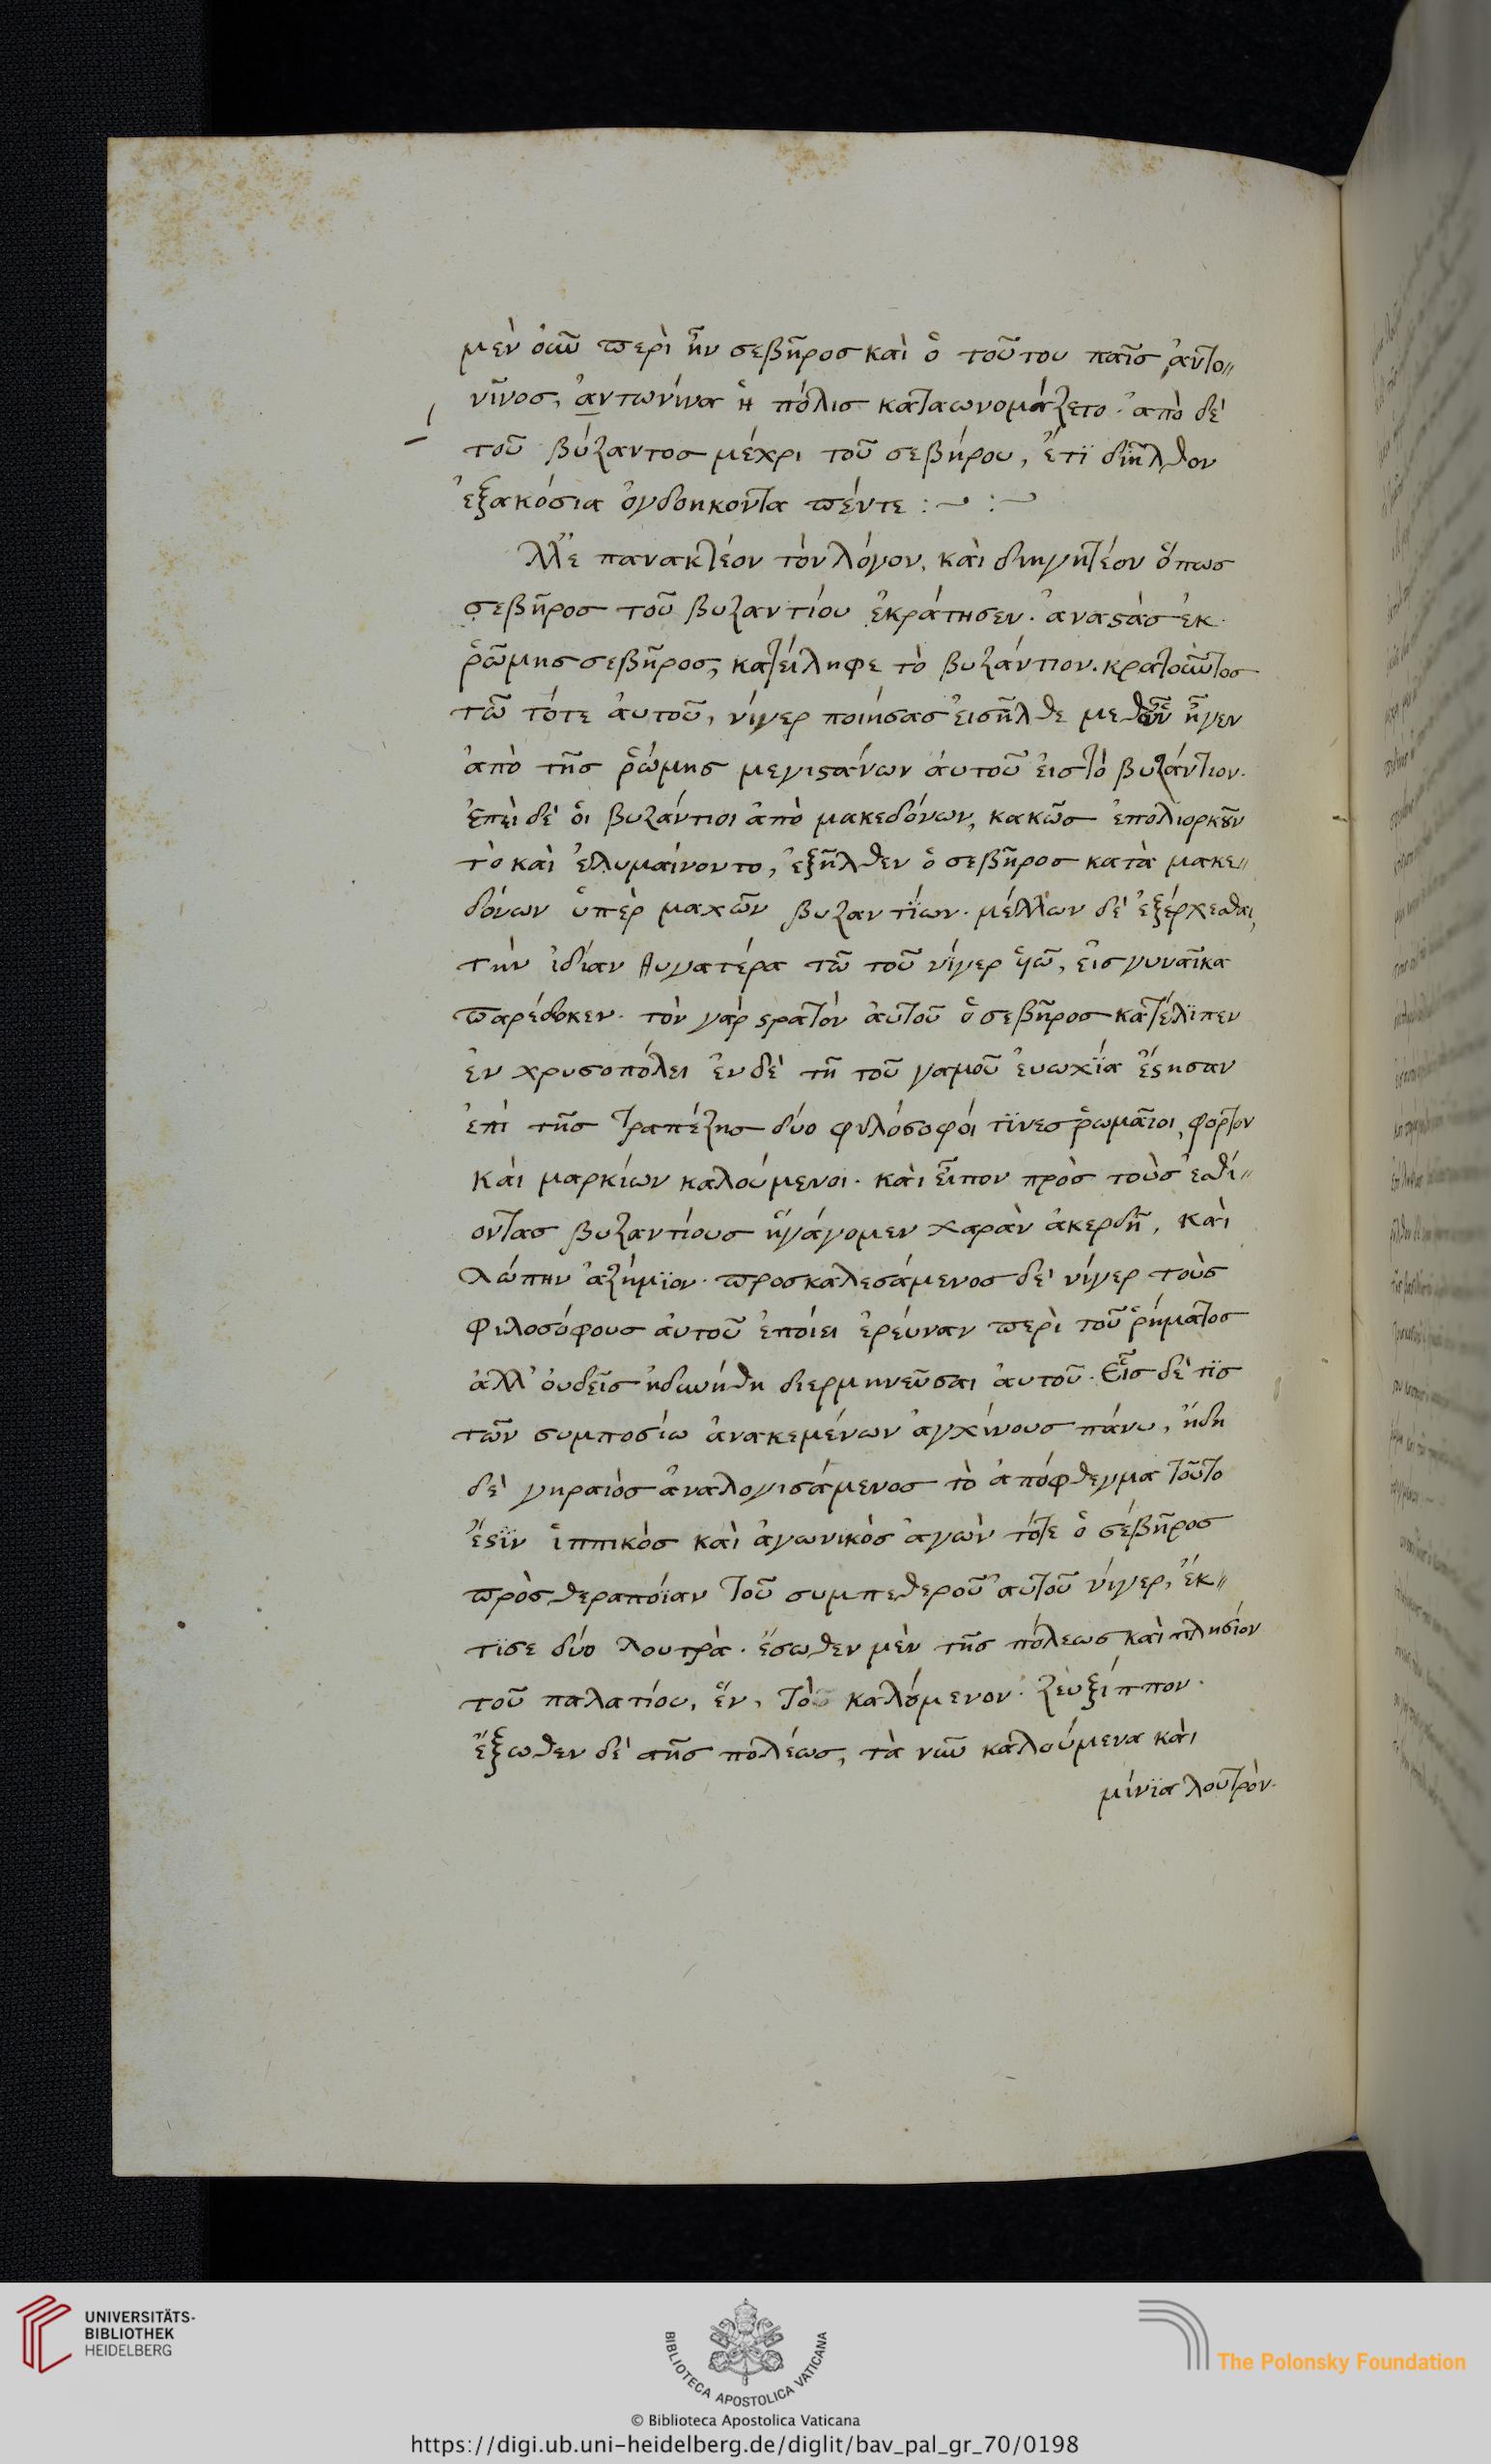 μὲν οὖν περὶ ἦν σεβῆρος καὶ ὁ τούτου παῖς ἀντο〃
νῖνος, ἀντωνίνα ἡ πόλις καταωνομάζετο· ἀπὸ δὲ
τοῦ βύζαντος μέχρι τοῦ σεβήρου, ἔτϊ διῆλθον
ἑξακόσια ὀγδοηκοντα πέντε :~ :~
Ἀλλ' ἐπανακτέον τὸν λόγον, καὶ διηγητέον ὅπως
σεβῆρος τοῦ βυζαντίου ἐκράτησεν. ἀναστὰς ἐκ
ῥώμης σεβῆρος, κατείληφε τὸ βυζάντιον. κρατοῦντος
τῶ τότε αὐτοῦ, νίγερ ποιήσας εἰσῆλθε μεθ' ὧν ἦγεν
ἀπὸ τῆς ῥώμης μεγιστάνων αὐτοῦ εἰς τὸ βυζάντιον.
ἐπεὶ δὲ οἱ βυζάντιοι ἀπὸ μακεδόνων, κακῶς ἐπολιορκοῦν
το καὶ ἐλυμαίνοντο, ἐξῆλθεν ὁ σεβῆρος κατὰ μακε〃
δόνων ὑπὲρ μαχῶν βυζαντΐων. μέλλων δὲ ἐξέρχεσθαι,
τὴν ἰδίαν θυγατέρα τῶ τοῦ νίγερ ὑῶ, εἰς γυναῖκα
παρέδοκεν. τὸν γὰρ στρατὸν αὐτοῦ ὁ σεβῆρος κατέλϊπεν
ἐν χρυσοπόλει ἐν δὲ τῆ τοῦ γαμοῦ εὐωχΐα ἔστησαν
ἐπὶ τῆς τραπέζης δύο φυλόσοφόι τϊνες ῥωμαῖοι, φορτον
καὶ μαρκίων καλούμενοι. καὶ εἶπον πρὸς τοὺς ἐσθί〃
οντας βυζαντίους ἠγάγομεν χαρὰν ἀκερδῆ, καὶ
λώπην ἀζήμϊον. προσκαλεσάμενος δὲ νίγερ τοὺς
φιλοσόφους αὐτοῦ ἐποίει ἐρεύναν περὶ τοῦ ῥήματος
ἀλλ' οὐδεῖς ἠδυνήθη διερμηνεῦσαι αὐτοῦ. Εἷς δὲ τϊς
τῶν συμποσίω ἀνακεμένων ἀγχίνους πάνυ, ἤδη
δὲ γηραιὸς ἀναλογισάμενος τὸ ἀπόφθεγμα τοῦτο
ἔστϊν ἱππικὸς καὶ ἀγωνικὸς ἀγὼν τότε ὁ σέβῆρος
πρὸς θεραπόϊαν τοῦ συμπεθεροῦ αὐτοῦ νίγερ, ἔκ〃
τϊσε δύο λουτρὰ. ἔσωθεν μὲν τῆς πόλεως καὶ πλησίον
τοῦ παλατίου, ἕν, τὸ καλούμενον ζευξίππον.
ἔξωθεν δὲ τῆς πολέως, τὰ νῦν καλούμενα και
μίνϊα λουτρὸν.
UNIVERSITÄTS-
BIBLIOTHEK
HEIDELBERG
BIBLIOTECA APOSTOLICA VATICANA
The Polonsky Foundation
© Biblioteca Apostolica Vaticana
https://digi.ub.uni-heidelberg.de/diglit/bav_pal_gr_70/0198